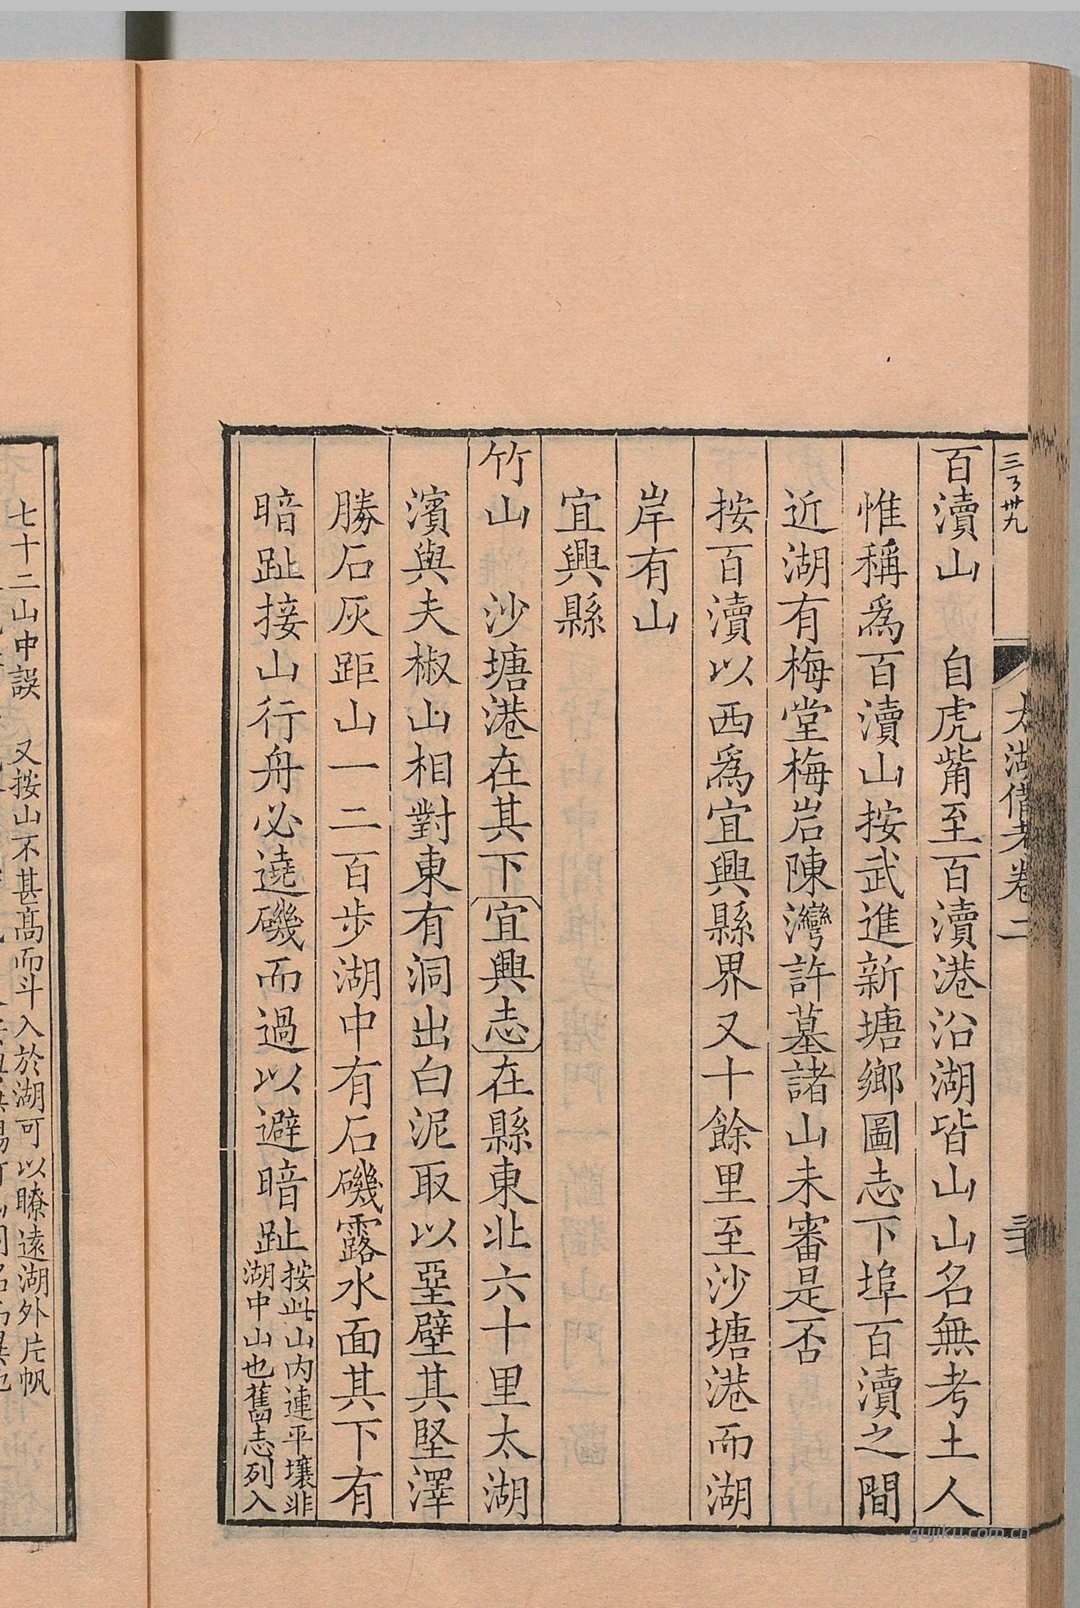 太湖備考卷二
百瀆山　自虎觜至百瀆港沿湖皆山山名無考土人
惟稱爲百瀆山按武進新塘鄉圖志下埠百瀆之間
近湖有梅堂梅岩陳灣許墓諸山未審是否
按百瀆以西爲宜興縣界又十餘里至沙塘港而湖
岸有山
宜興縣
竹山　沙塘港在其下宜興志在縣東北六十里太湖
濱與夫椒山相對東有洞出白泥取以堊壁其堅澤
勝石灰距山一二百步湖中有石磯露水面其下有
暗趾接山行舟必遶磯而過以避暗趾按此山內連平壤非
湖中山也舊志列入
七十二山中誤　又按山不甚高而斗入於湖可以瞭遠湖外片帆
gujiku.com.cn